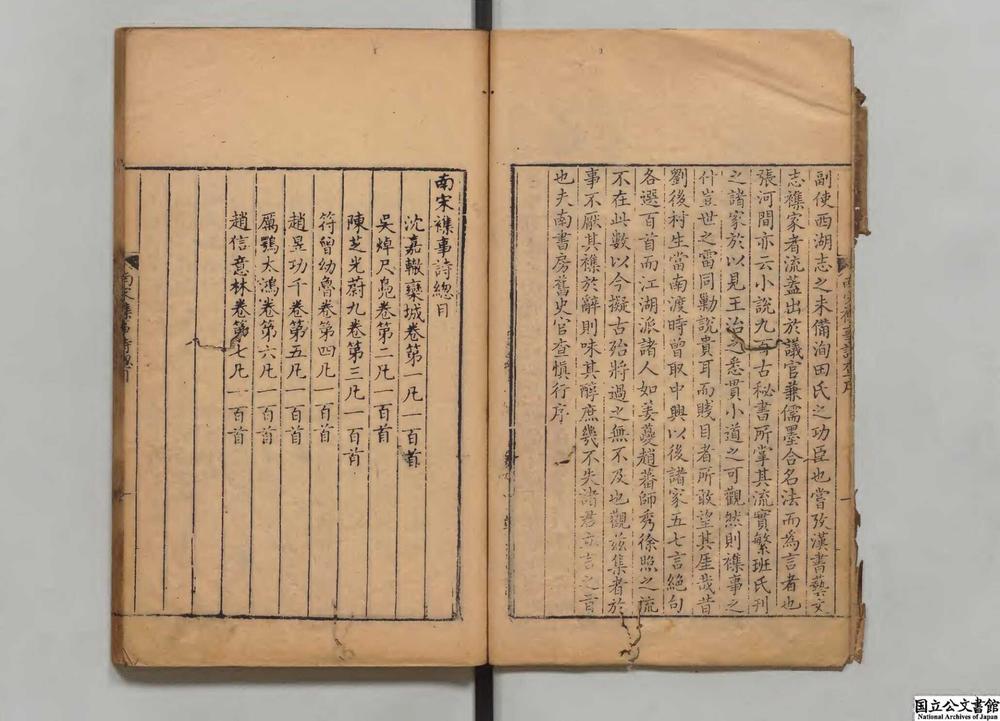 副使西湖志之未備洵田氏之功臣也嘗攷漢書藝文
志襍家者流葢出於議官兼儒墨合名法而為言者也
張河間亦云小說九百古秘書所掌其流實繁班氏刊
之諸家於以見王治之悉貫小道之可觀然則襍事之
什豈世之雷同勦說貴耳而賤目者所敢望其厓哉昔
劉後村生當南渡時曾取中興以後諸家五七言絕句
各選百首而江湖派諸人如姜夔趙蕃師秀徐照之流
不在此數以今擬古殆將過之無不及也觀茲集者於
事不厭其襍於辭則味其醇庶幾不失諸君立言之旨
也夫南書房舊史官查慎行序
南宋襍事詩總目
沈嘉轍欒城卷第一凡一百首
吳焯尺鳧卷第二凡一百首
陳芝光蔚九卷第三凡一百首
符曾幼魯卷第四凡一百首
趙昱功千卷第五凡一百首
厲鶚太鴻卷第六凡一百首
趙信意林卷第七凡一百首
南宋襍事詩總目
国立公文書館
National Archives of Japan